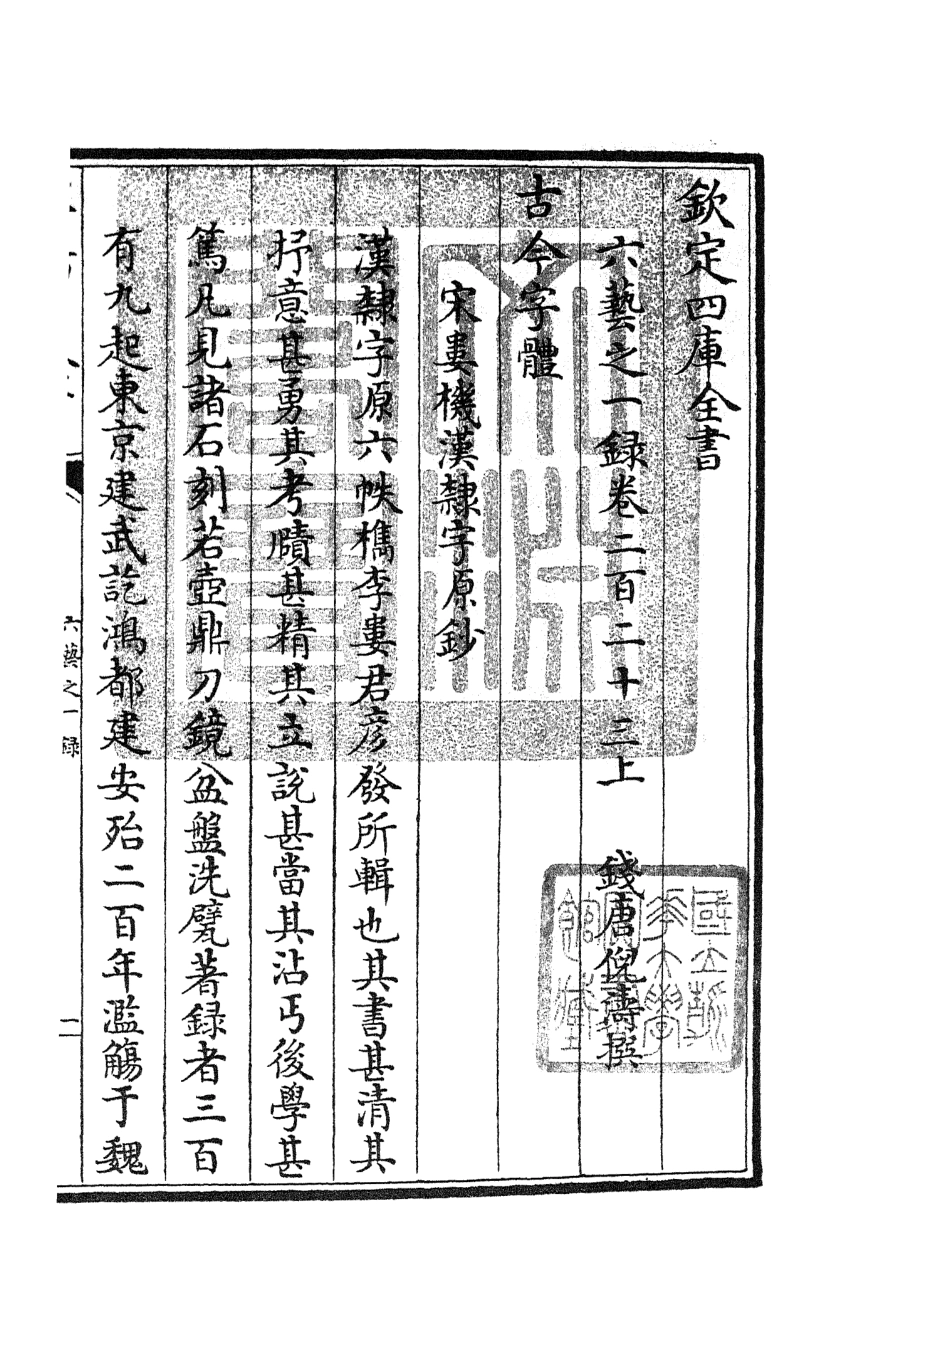 欽定四庫全書
六藝之一録卷二百二十三上　錢唐倪濤撰
古今字體
宋婁機漢隸字原鈔
漢隸字原六帙檇李婁君彦發所輯也其書甚清其
抒意甚勇其考賾甚精其立說甚當其沾丐後學甚
篤凡見諸石刻若壺鼎刀鏡盆盤洗甓著録者三百
有九起東京建武訖鴻都建安殆二百年濫觴于魏
六藝之一録
二
國立浙
江大學